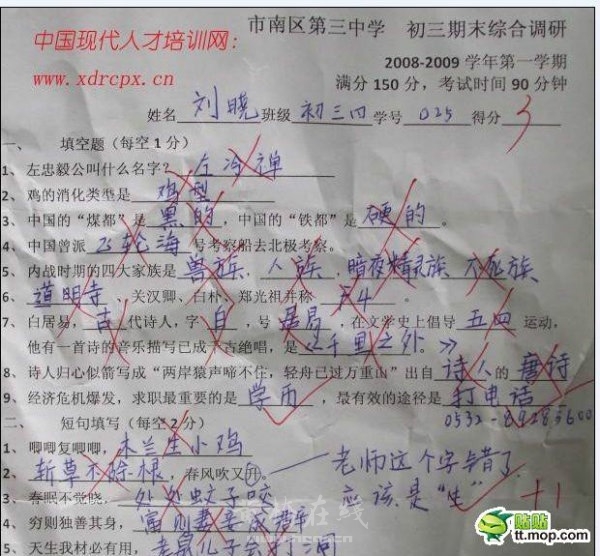 中国现代人才培训网：
www.xdrcpx.cn
市南区第三中学 初三期末综合调研
2008-2009 学年第一学期
满分 150 分，考试时间 90 分钟
姓名刘晓班级初三四学号025得分3
一、 填空题（每空 1 分）
1、左忠毅公叫什么名字？左冷禅
2、鸡的消化类型是鸡型
3、中国的“煤都”是黑的，中国的“铁都”是硬的。
4、中国曾派飞轮海号考察船去北极考察。
5、内战时期的四大家族是兽族、人族、暗夜精灵族、不死族
6、道明寺、关汉卿、白朴、郑光祖并称F4。
7、白居易，古代诗人，字白，号居易，在文学史上倡导五四运动，
他有一首诗的音乐描写已成千古绝唱，是《千里之外。》
8、诗人归心似箭写成“两岸猿声啼不住，轻舟已过万重山”出自诗人的唐诗
9、经济危机爆发，求职最重要的是学历，最有效的途径是打电话
二、 短句填写（每空 2 分）
1、唧唧复唧唧，木兰生小鸡
2、斩草不除根，春风吹又开。——老师这个字错了
应该是“生” +1
3、春眠不觉晓，处处蚊子咬
4、穷则独善其身，富则妻妾成群
5、天生我材必有用，老鼠儿子会打洞
tt.mop.com